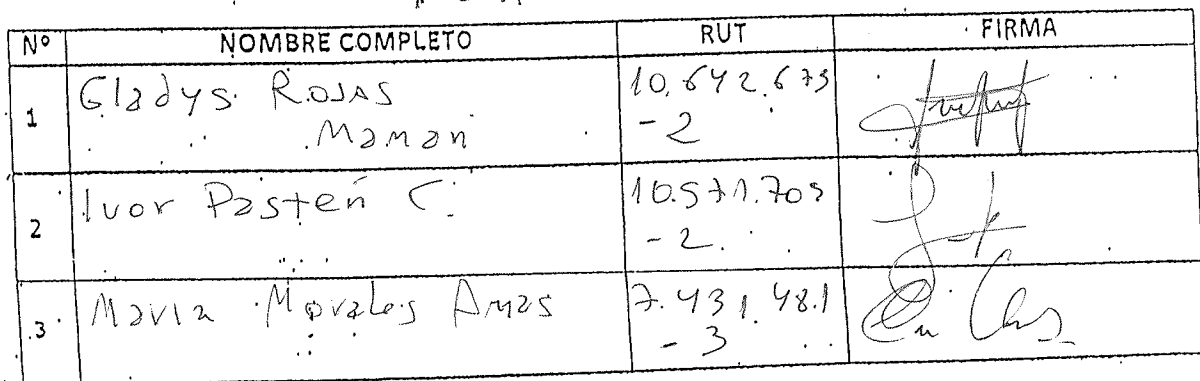 Nº NOMBRE COMPLETO RUT FIRMA
1 Gladys Rojas 10.642.673
Maman -2
2 Ivor Pasten C. 10.571.709
-2.
3 Maria Morales Amas 7.431.481
-3